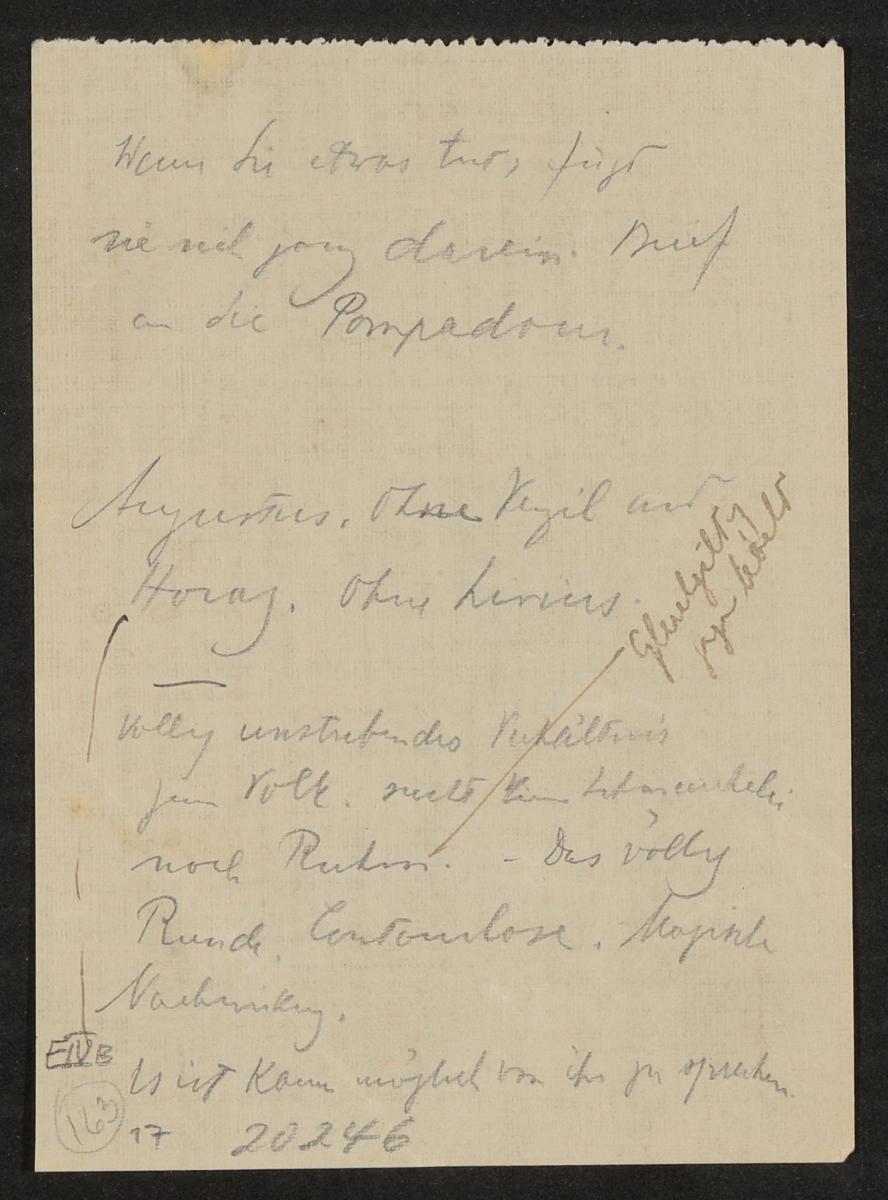 Wenn sie etwas tut, fügt
sie sich ganz darein. Brief
an die Pompadour.
Augustus. Ohne Vergil und
Horaz. Ohne Livius.
Gleichgiltig
gegen
Völlig unstrebendes Verhältnis
zum Volk. sucht kein
noch Ruhm. – Das völlig
Runde. Contourlose. Magische
Nachwirkung.
Es ist kaum möglich von ihr zu sprechen.
EIVB
163
17 20246